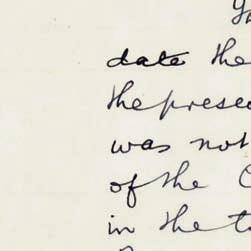 date the
the prese
was not
of the C
in the t